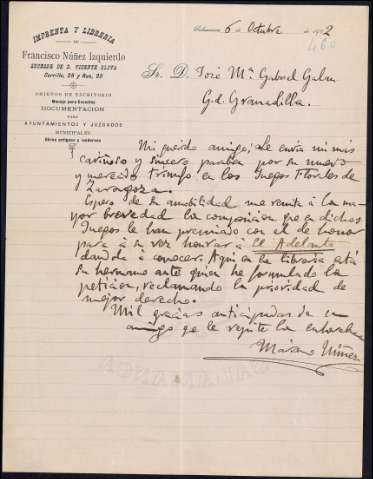 IMPRENTA Y LIBRERIA
DE
Francisco Núñez Izquierdo
SUCESOR DE D. VICENTE OLIVA
Corrillo, 28 y Rua, 25
OBJETOS DE ESCRITORIO
Menaje para Escuelas
DOCUMENTACION
PARA
AYUNTAMIENTOS Y JUZGADOS
MUNICIPALES
Obras antiguas y modernas
Salamanca 6 de Octubre de 1902
460
Sr. D. José Mª Gabriel Galan
Gd. Granadilla.
Mi querido amigo: Le envio mi más
cariñoso y sincero parabien por su nuevo
y merecido triunfo en los Juegos Florales de
Zaragoza.
Espero de su amabilidad me remita à la ma-
yor brevedad la composicion que en dichos
Juegos le han premiado con el de honor
para à su vez honrar à El Adelanto
dandola à conocer. Aqui en la libreria está
su hermano ante quien he formulado la
petición, reclamando la prioridad de
mejor derecho.
Mil gracias anticipadas de su
amigo qe le repite la enhorabuena
Mariano Núñez
SALAMANCA